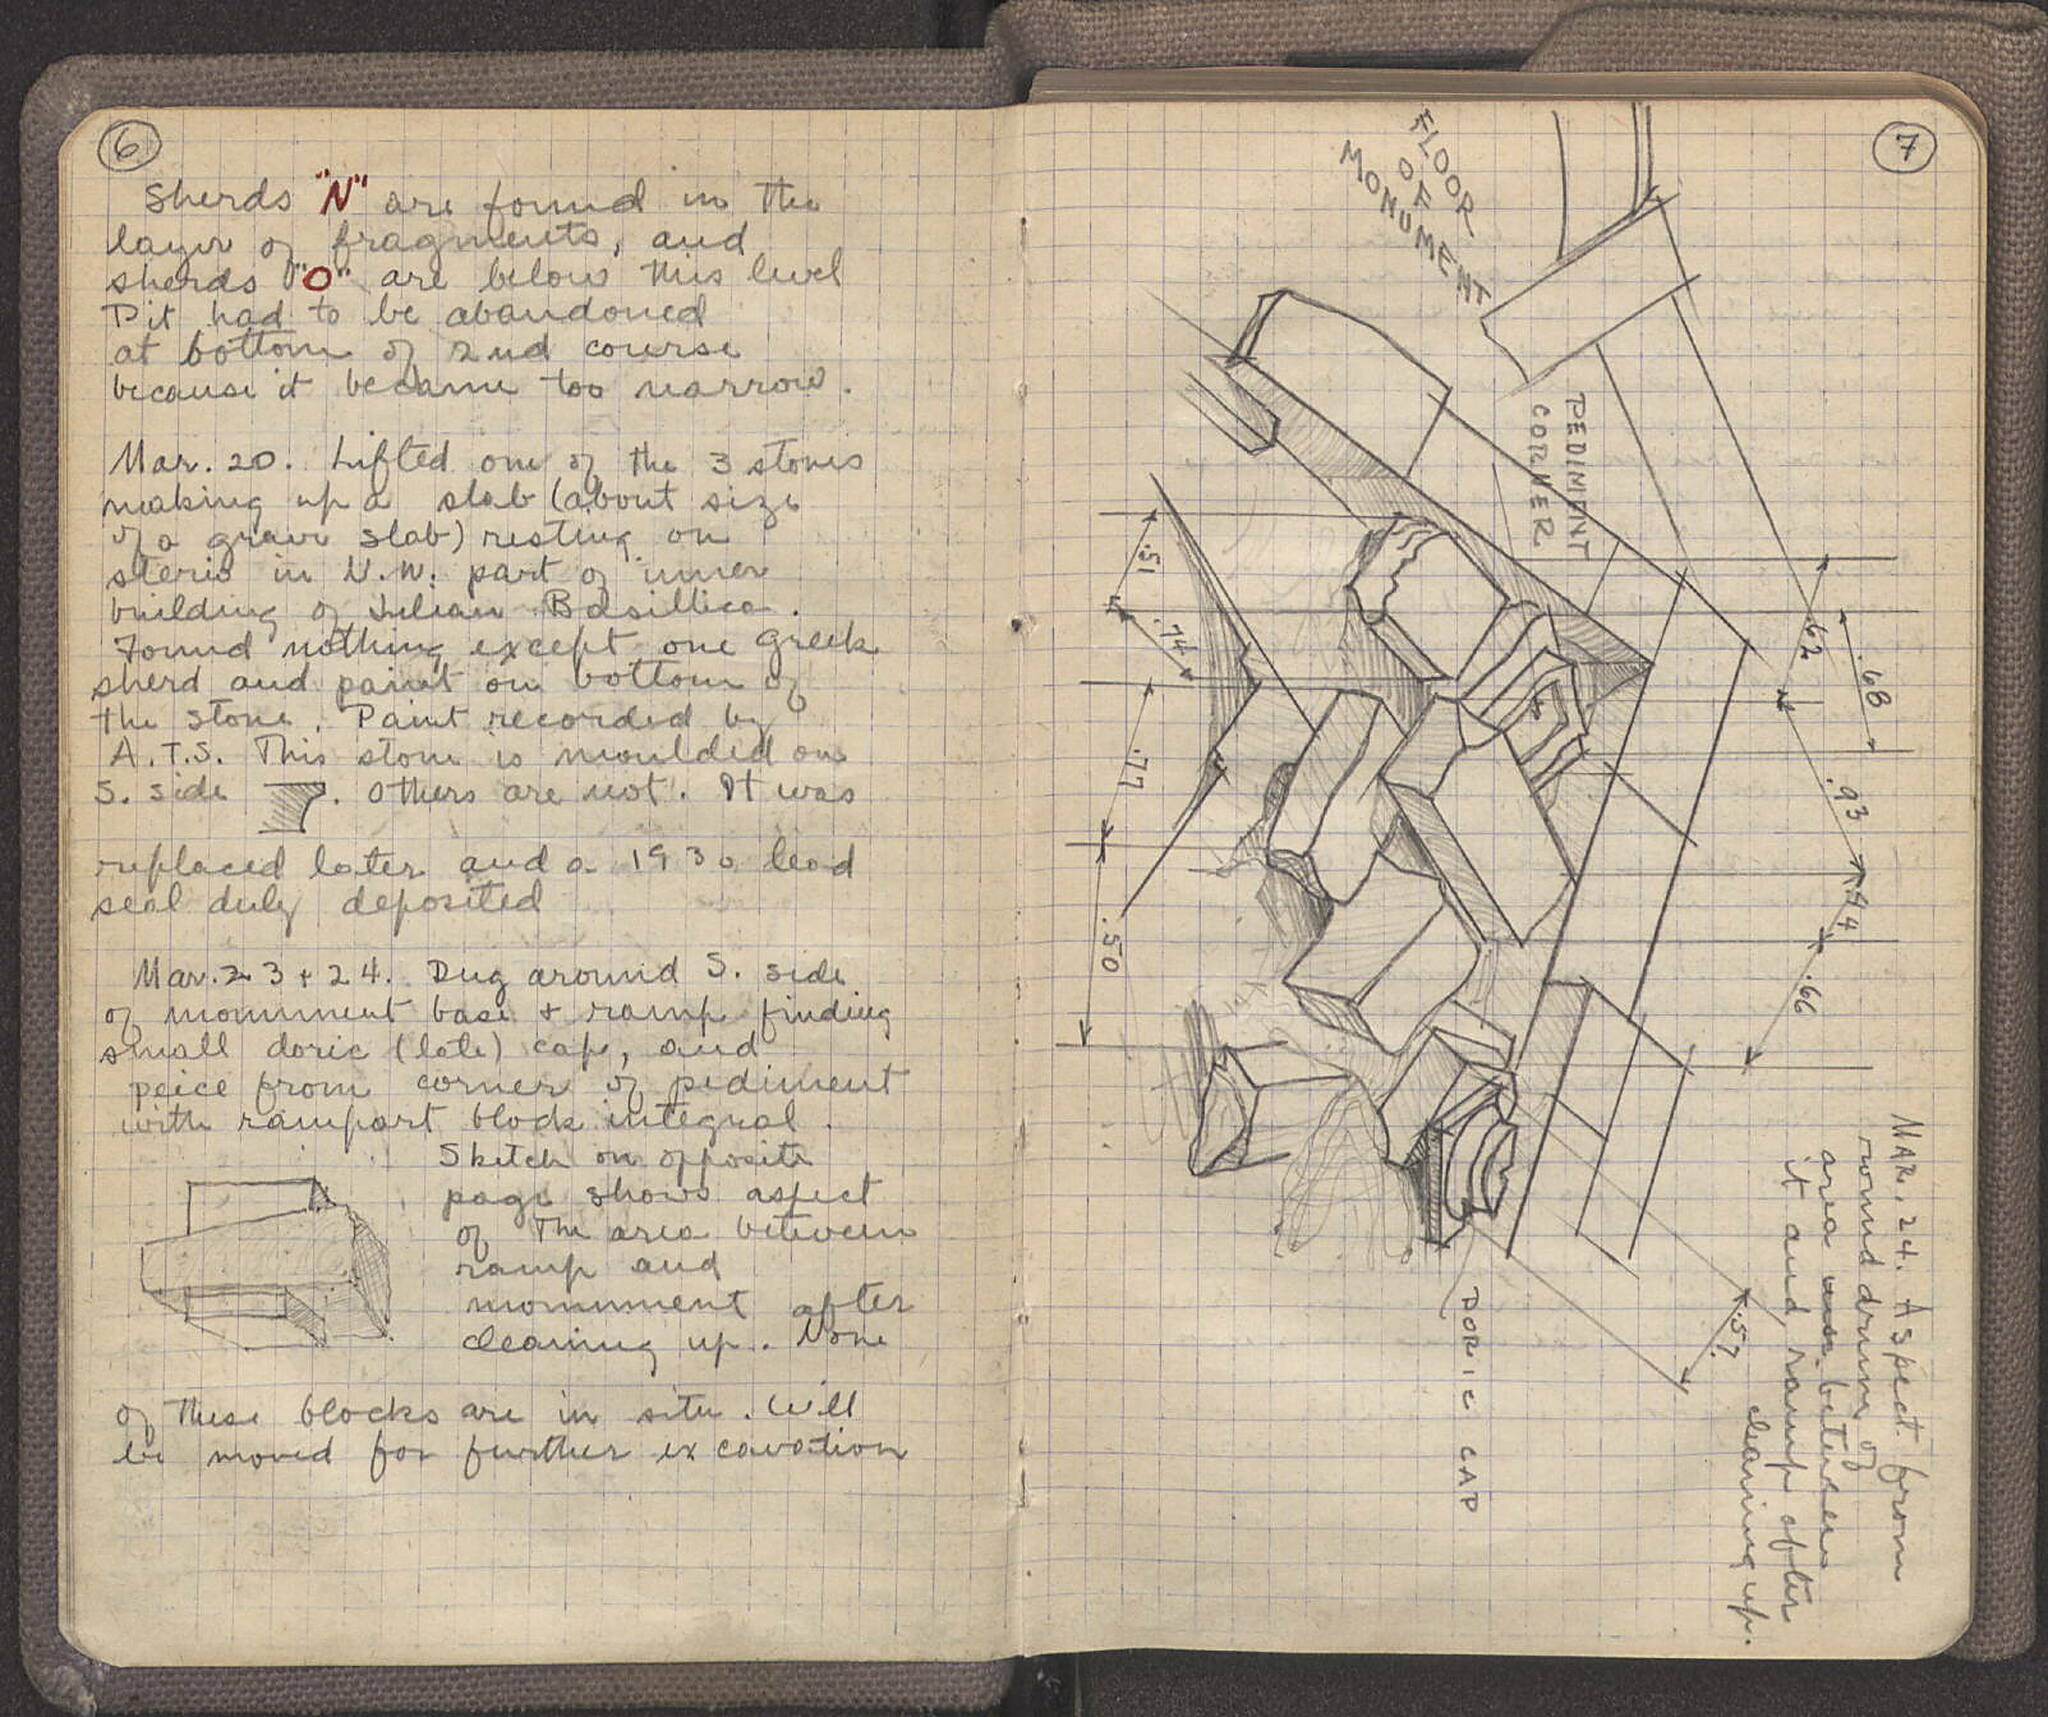 6
Sherds "N" are found in the
layer of fragments, and
sherds "O" are below this level
Pit had to be abandoned
at bottom of 2nd course
because it became too narrow.
Mar. 20. Lifted one of the 3 stones
making up a slab (about size
of a grave slab) resting on
stereo in N.W. part of inner
building of Julian Basillica.
Found nothing except one Greek
sherd and paint on bottom of
the stone. Paint recorded by
A.T.S. This stone is moulded on
S. side . Others are not. It was
replaced later and a 1930 lead
seal duly deposited
Mar. 23 + 24. Dug around S. side
of monument base + ramp finding
small doric (late) cap, and
peice from corner of pediment
with rampart block integral.
Sketch on opposite
page shows aspect
of the area between
ramp and
monument after
cleaning up. None
of these blocks are in situ. Will
be moved for further excavation
7
FLOOR
OF
MONUMENT
PEDIMENT
CORNER
.51
.74
.77
.50
.62
.68
.93
.44
.66
.57
DORIC CAP
MAR. 24. Aspect from
round drum of
area between
it and ramp after
cleaning up.